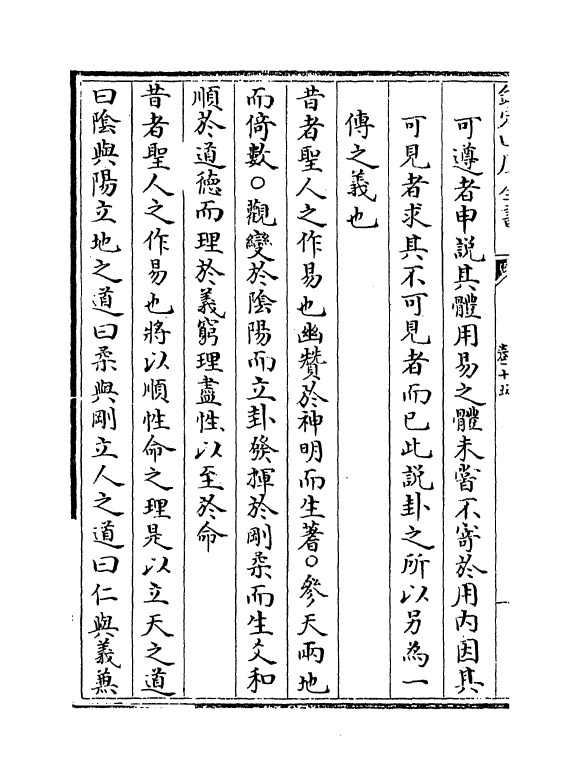 欽定四庫全書
卷十五
可遵者申説其體用易之體未嘗不寄於用内因其
可見者求其不可見者而已此説卦之所以另為一
傳之義也
昔者聖人之作易也幽贊於神明而生蓍○參天兩地
而倚數○觀變於陰陽而立卦發揮於剛柔而生爻和
順於道德而理於義窮理盡性以至於命
昔者聖人之作易也將以順性命之理是以立天之道
曰陰與陽立地之道曰柔與剛立人之道曰仁與義兼